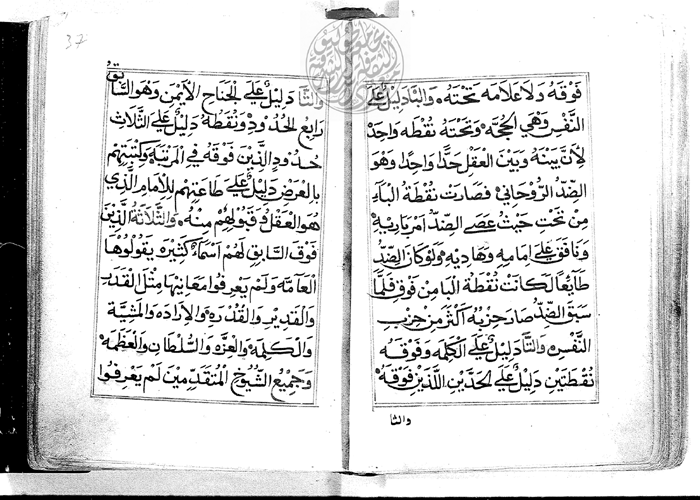 فوقه ولا علامه تحته والبا دليل على
النفس وهي الحجه وتحته نقطه واحده
لأن بينه وبين العقل حدًا واحدًا وهو
الضد الروحاني فصارت نقطة الباء
من تحتِ حيث عصى الضد امر باريه
ونافق على امامه وهاديه ولو كان الضد
طايعًا لكانت نقطة البا من فوق فلما
سبق الضد صار حزبه أكثر من حزب
النفس والتا دليل على الكلمه وفوقه
نقطتين دليل على الحدين اللذين فوقه
والثا
37
والثا دليل على الجناح الأيمن وهو السابق
رابع الحدود ونقطه دليل على الثلاث
حدود الذين فوقه في المرتبة وكتبتهم
بالعرض دليل على طاعتهم للامام الذي
هو العقل وقبولهم منه والثلاثة الذين
فوق السابق لهم اسماء كثيره يقولوها
العامه ولم يعرفوا معانيها مثل القدر
والقدير والقدره والإراده والمشية
والكلمه والعزه والسلطان والعظمه
وجميع الشيوخ المتقدمين لم يعرفوا